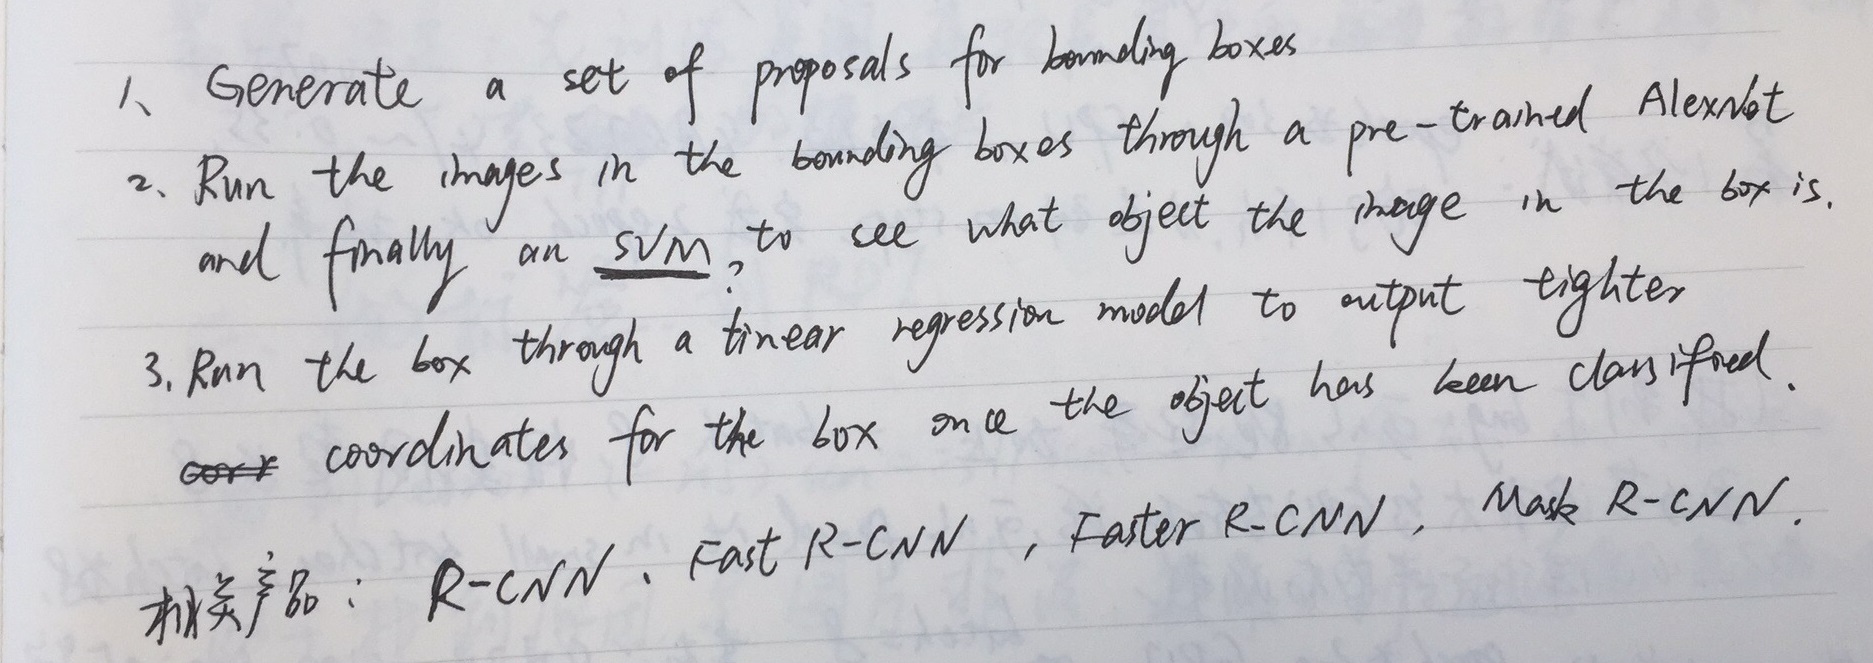 1、 Generate a set of proposals for bounding boxes
2、 Run the images in the bounding boxes through a pre-trained AlexNet
and finally an SVM ? to see what object the image in the box is.
3. Run the box through a linear regression model to output tighter
coordinates for the box once the object has been classified.
相关产品: R-CNN、Fast R-CNN, Faster R-CNN, Mask R-CNN.